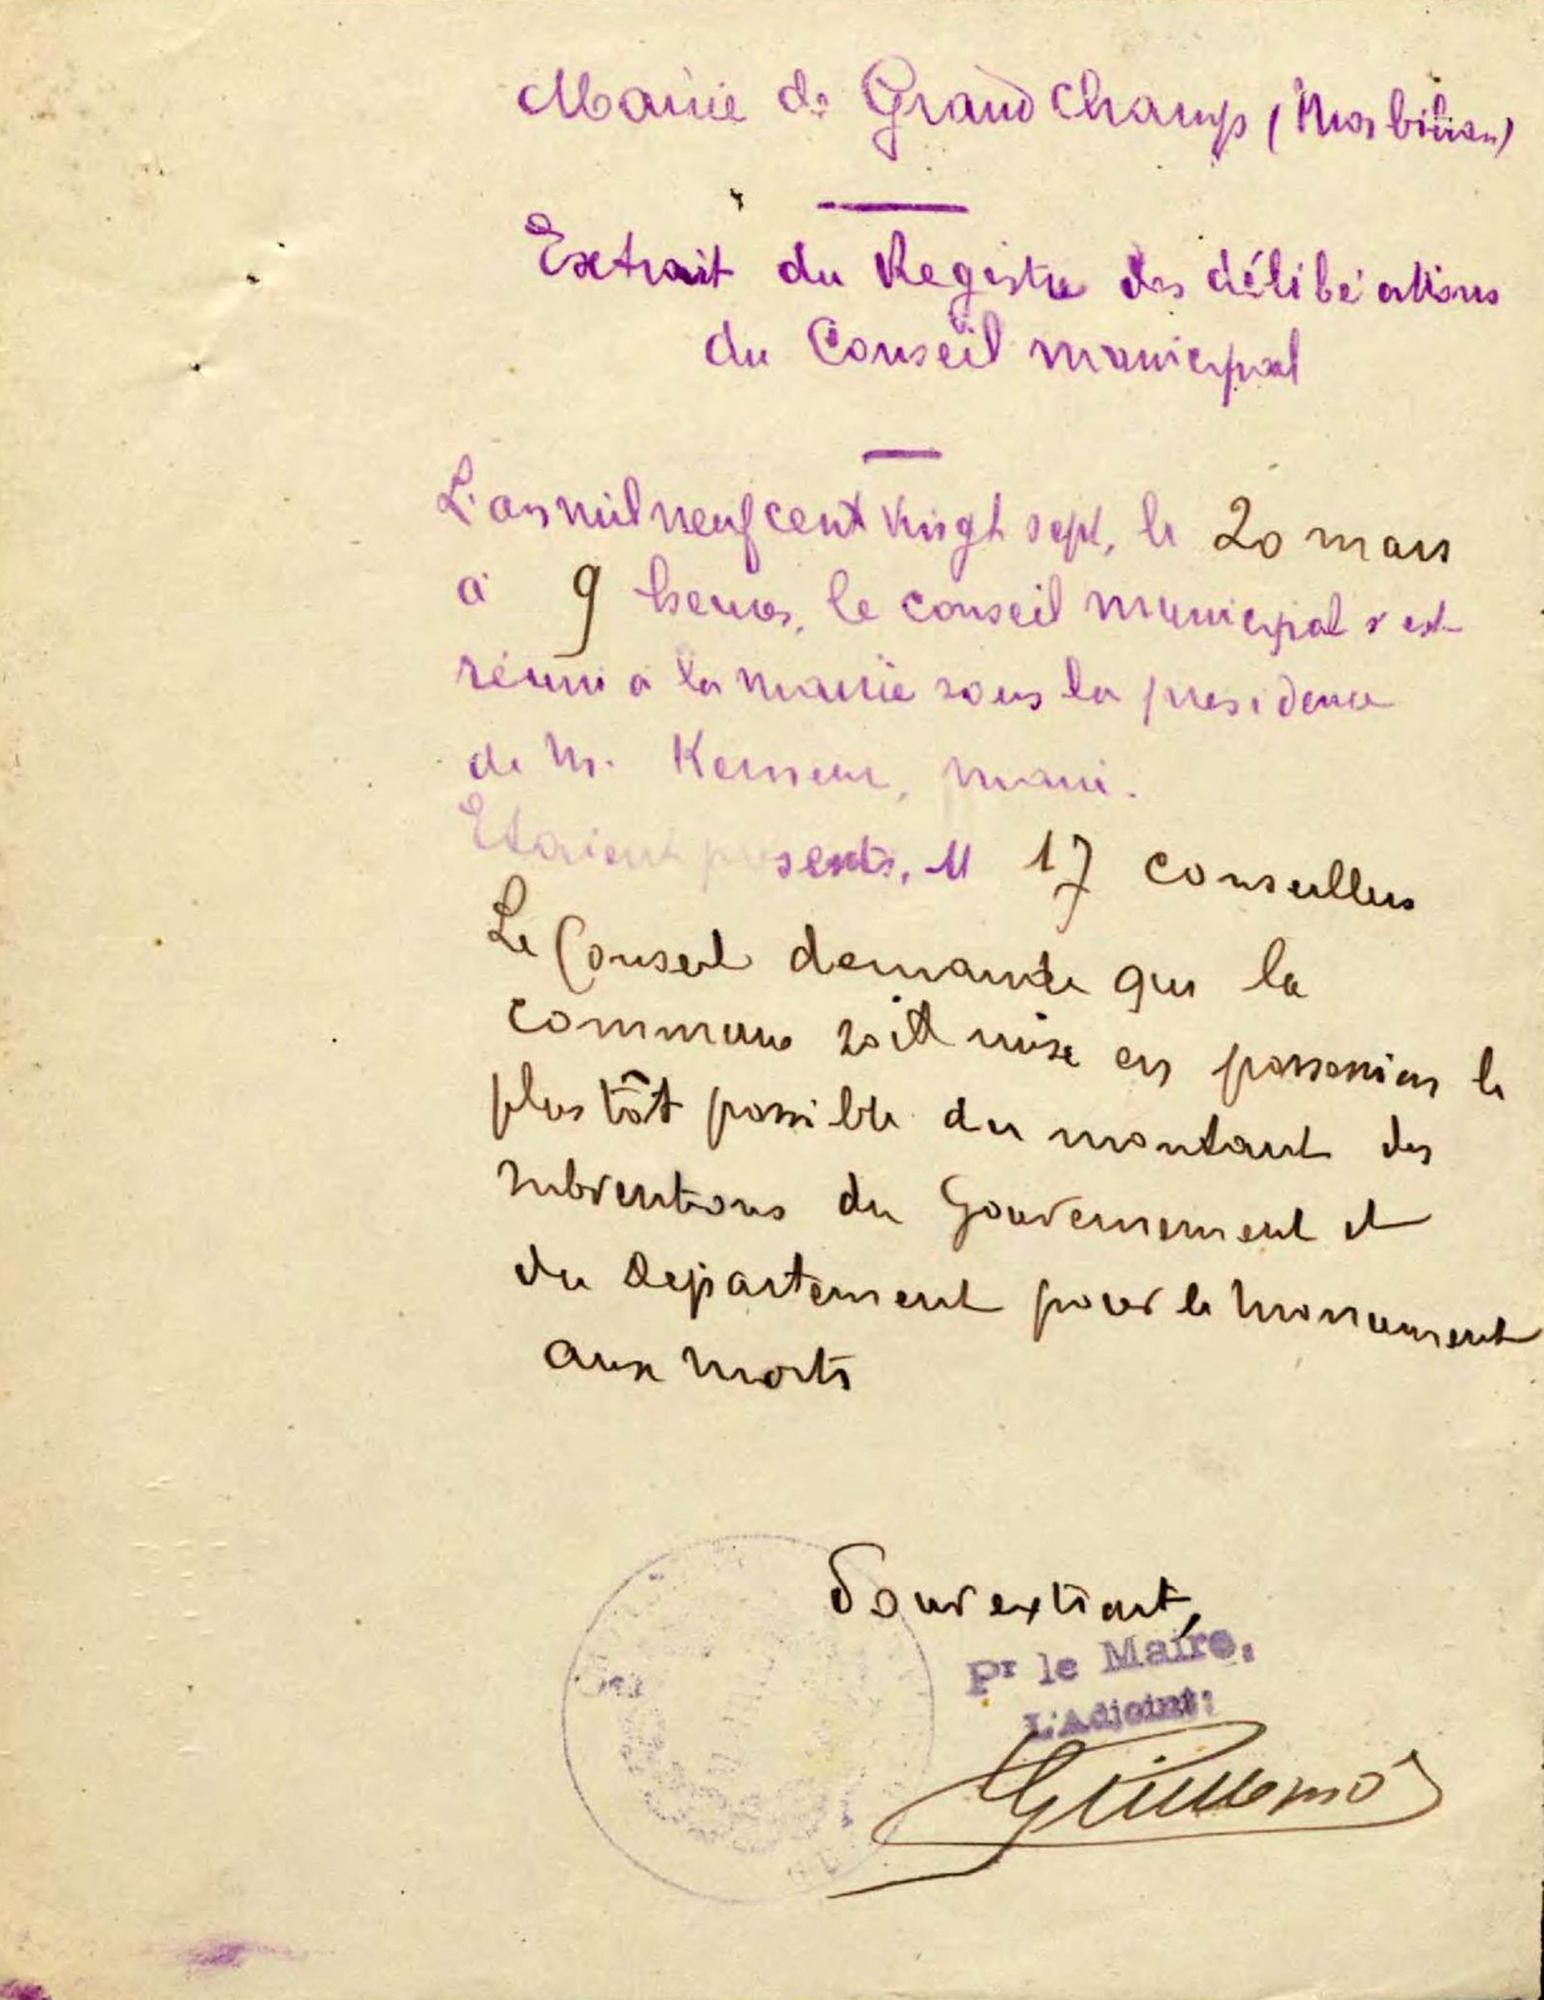 Mairie de Grand Champ (Morbihan)
Extrait du Registre des délibérations
du Conseil municipal
L'an mil neuf cent vingt sept, le 20 mars
à 9 heures, le conseil municipal s'est
réuni à la mairie sous la présidence
de M. Kerneur, maire.
Etaient présents, M 17 conseillers
Le Conseil demande que la
commune soit mise en possession le
plus tôt possible du montant des
subventions du Gouvernement et
du Département pour le monument
aux morts
Pour extrait,
Pr le Maire.
L'Adjoint: